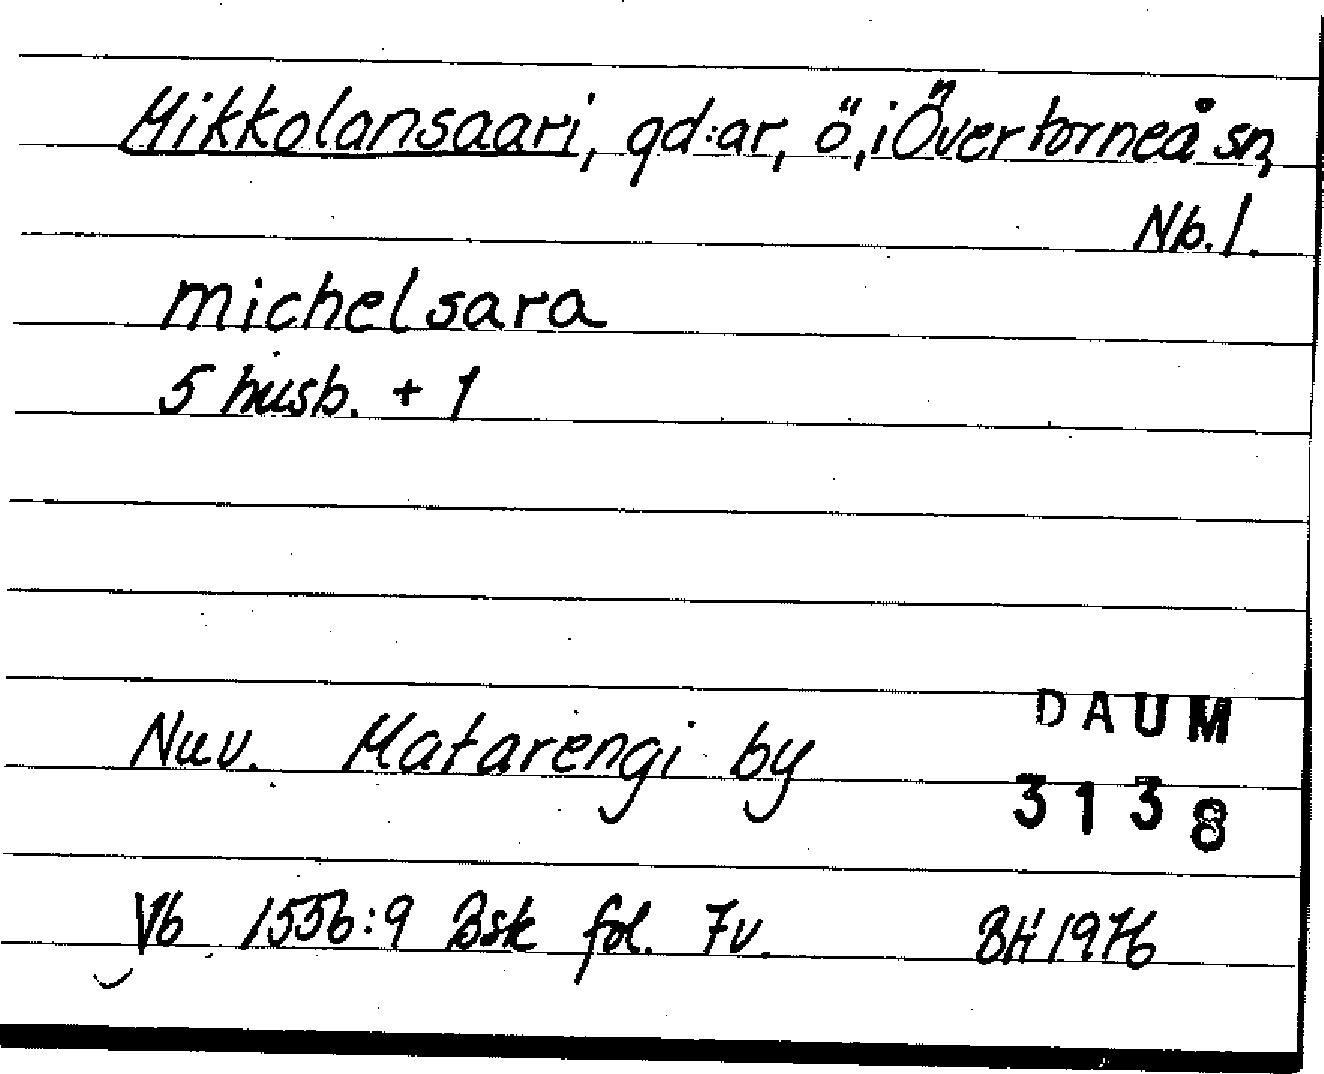 Mikkolansaari, gd:ar, ö, i Övertorneå sn,
Nb. l.
michelsara
5 husb. + 1
Nuv. Matarengi by
DAUM
3138
Vb 1556:9 Bsk fol. 7v. BH 1976